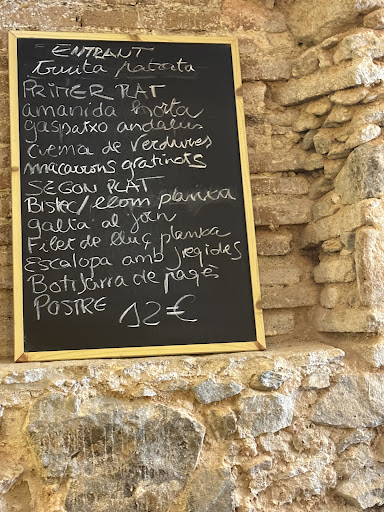 ENTRANT
truita patata
PRIMER PLAT
amanida horta
gaspatxo andalus
crema de verdures
macarrons gratinats
SEGON PLAT
Bistec/llom planxa
galta al forn
Filet de lluç planxa
Escalopa amb fregides
Botifarra de pagès
POSTRE 12 €